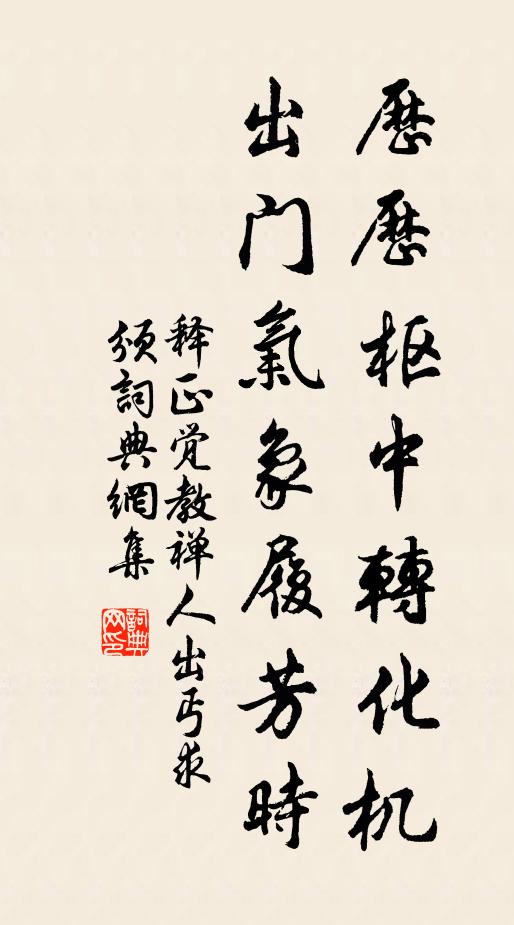 歷歷枢中轉化机
出門氣象履芳時
释正觉教禅人出丐求
颂詞典網集
詞典网印